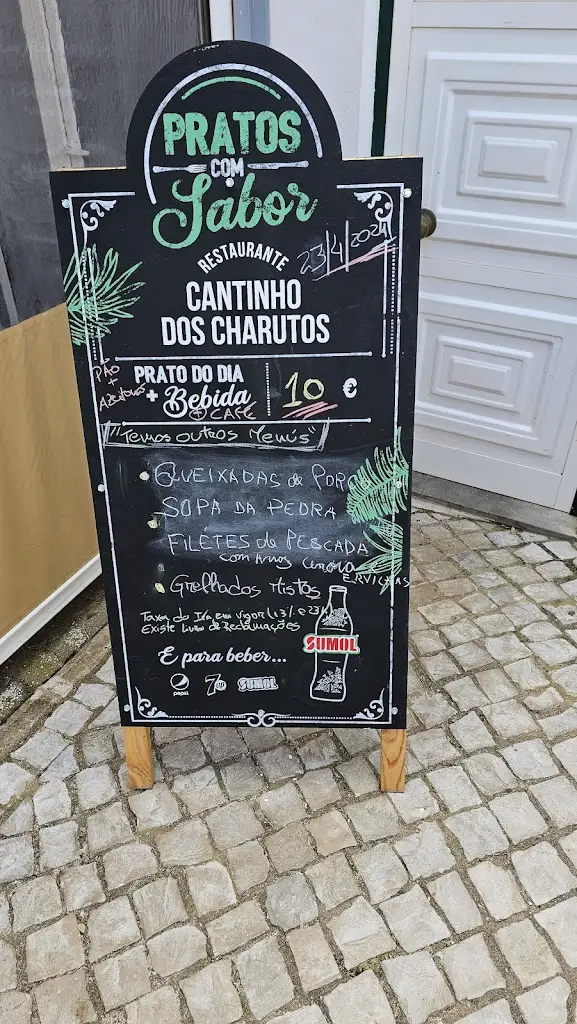 PRATOS
COM
Sabor
RESTAURANTE
23/4/2024
CANTINHO
DOS CHARUTOS
PRATO DO DIA
+ Bebida
+ CAFÉ
PÃO
+
AZEITONAS
10 €
"Temos outros Menús"
QUEIXADAS de PORCO
SOPA DA PEDRA
FILETES de PESCADA
com Arroz Cenoura
E RVILHAS
Grelhados Mistos
Taxa do Iva em vigor (13% e 23%)
Existe Livro de Reclamações
E para beber...
SUMOL
pepsi
7up
SUMOL